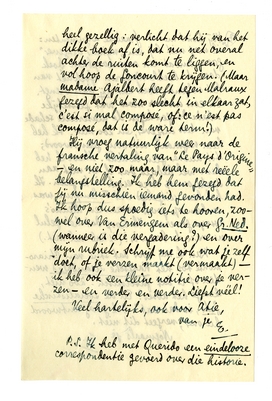 heel gezellig: verlicht dat hij van het
dikke boek af is, dat nu net overal
achter de ruiten komt te liggen, en
vol hoop de Goncourt te krijgen. (Maar
madame Ajalbert heeft tegen Malraux
gezegd dat het zoo slecht in elkaar zat,
c'est si mal composé, of: ce n'est pas
composé, dat is de ware term!)
Hij vroeg natuurlijk weer naar de
fransche vertaling van "Le Pays d'Origine"
en niet zoo maar, maar met reëele
belangstelling. Ik heb hem gezegd dat
jij nu misschien iemand gevonden had.
Ik hoop dus spoedig iets te hooren, zoo-
wel over Van Ermengen als over Gr. Ned.
(wanneer is die vergadering?) en over
mijn rubriek. Schrijf me ook wat je zelf
doet, of je verzen markt (vermaakt) —
ik heb ook een kleine notitie over je ver-
zen – en verder en verder. Liefst véél!
Veel hartelijks, ook voor Atie,
van je E.
P.S. Ik heb met Querido een eindelooze
correspondentie gevoerd over die historie.